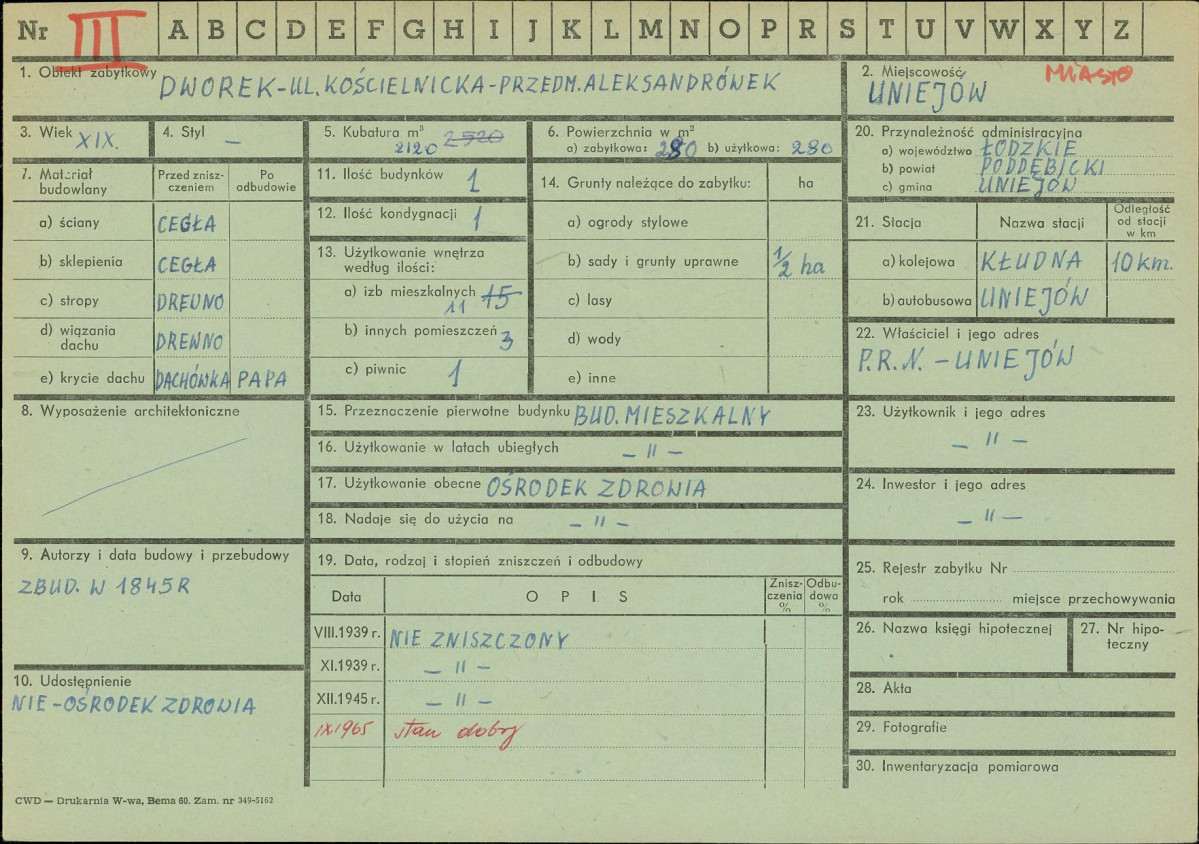 Nr III A B C D E F G H I J K L M N O P R S T U V W X Y Z
1. Obiekt zabytkowy DWOREK-UL. KOŚCIELNICKA-PRZEDM. ALEKSANDRÓWEK
2. Miejscowość MIASTO
UNIEJÓW
3. Wiek XIX.
4. Styl —
5. Kubatura m³ 2520
2120
6. Powierzchnia w m²
a) zabytkowa: 280 b) użytkowa: 280
7. Materiał budowlany
Przed zniszczeniem
Po odbudowie
a) ściany CEGŁA
b) sklepienia CEGŁA
c) stropy DREWNO
d) wiązania dachu DREWNO
e) krycie dachu DACHÓWKA PAPA
8. Wyposażenie architektoniczne
9. Autorzy i data budowy i przebudowy
ZBUD. W 1845R
10. Udostępnienie
NIE-OŚRODEK ZDROWIA
11. Ilość budynków 1
12. Ilość kondygnacji 1
13. Użytkowanie wnętrza
według ilości:
a) izb mieszkalnych 15
11
b) innych pomieszczeń 3
c) piwnic 1
14. Grunty należące do zabytku: ha
a) ogrody stylowe
b) sady i grunty uprawne 1/2 ha
c) lasy
d) wody
e) inne
15. Przeznaczenie pierwotne budynku BUD. MIESZKALNY
16. Użytkowanie w latach ubiegłych — " —
17. Użytkowanie obecne OŚRODEK ZDROWIA
18. Nadaje się do użycia na — " —
19. Data, rodzaj i stopień zniszczeń i odbudowy
Data OPIS Zniszczenia % Odbudowa %
VIII.1939 r. NIE ZNISZCZONY
XI.1939 r. — " —
XII.1945 r. — " —
IX 1965 stan dobry
20. Przynależność administracyjna
a) województwo ŁÓDZKIE
b) powiat PODDĘBICKI
c) gmina UNIEJÓW
21. Stacja Nazwa stacji Odległość od stacji w km
a) kolejowa KŁUDNA 10 km.
b) autobusowa UNIEJÓW
22. Właściciel i jego adres
P.R.N. - UNIEJÓW
23. Użytkownik i jego adres
— " —
24. Inwestor i jego adres
— " —
25. Rejestr zabytku Nr
rok miejsce przechowywania
26. Nazwa księgi hipotecznej
27. Nr hipoteczny
28. Akta
29. Fotografie
30. Inwentaryzacja pomiarowa
CWD — Drukarnia W-wa, Bema 60. Zam. nr 349-5162